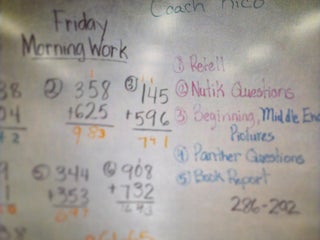 Coach Nico
Friday
Morning Work
② 358
+625
983
③ 145
+596
741
⑤ 344
+353
697
⑥ 908
+732
① Retell
② Nutik Questions
③ Beginning, Middle En
Pictures
④ Panther Questions
⑤ Book Report
286-292